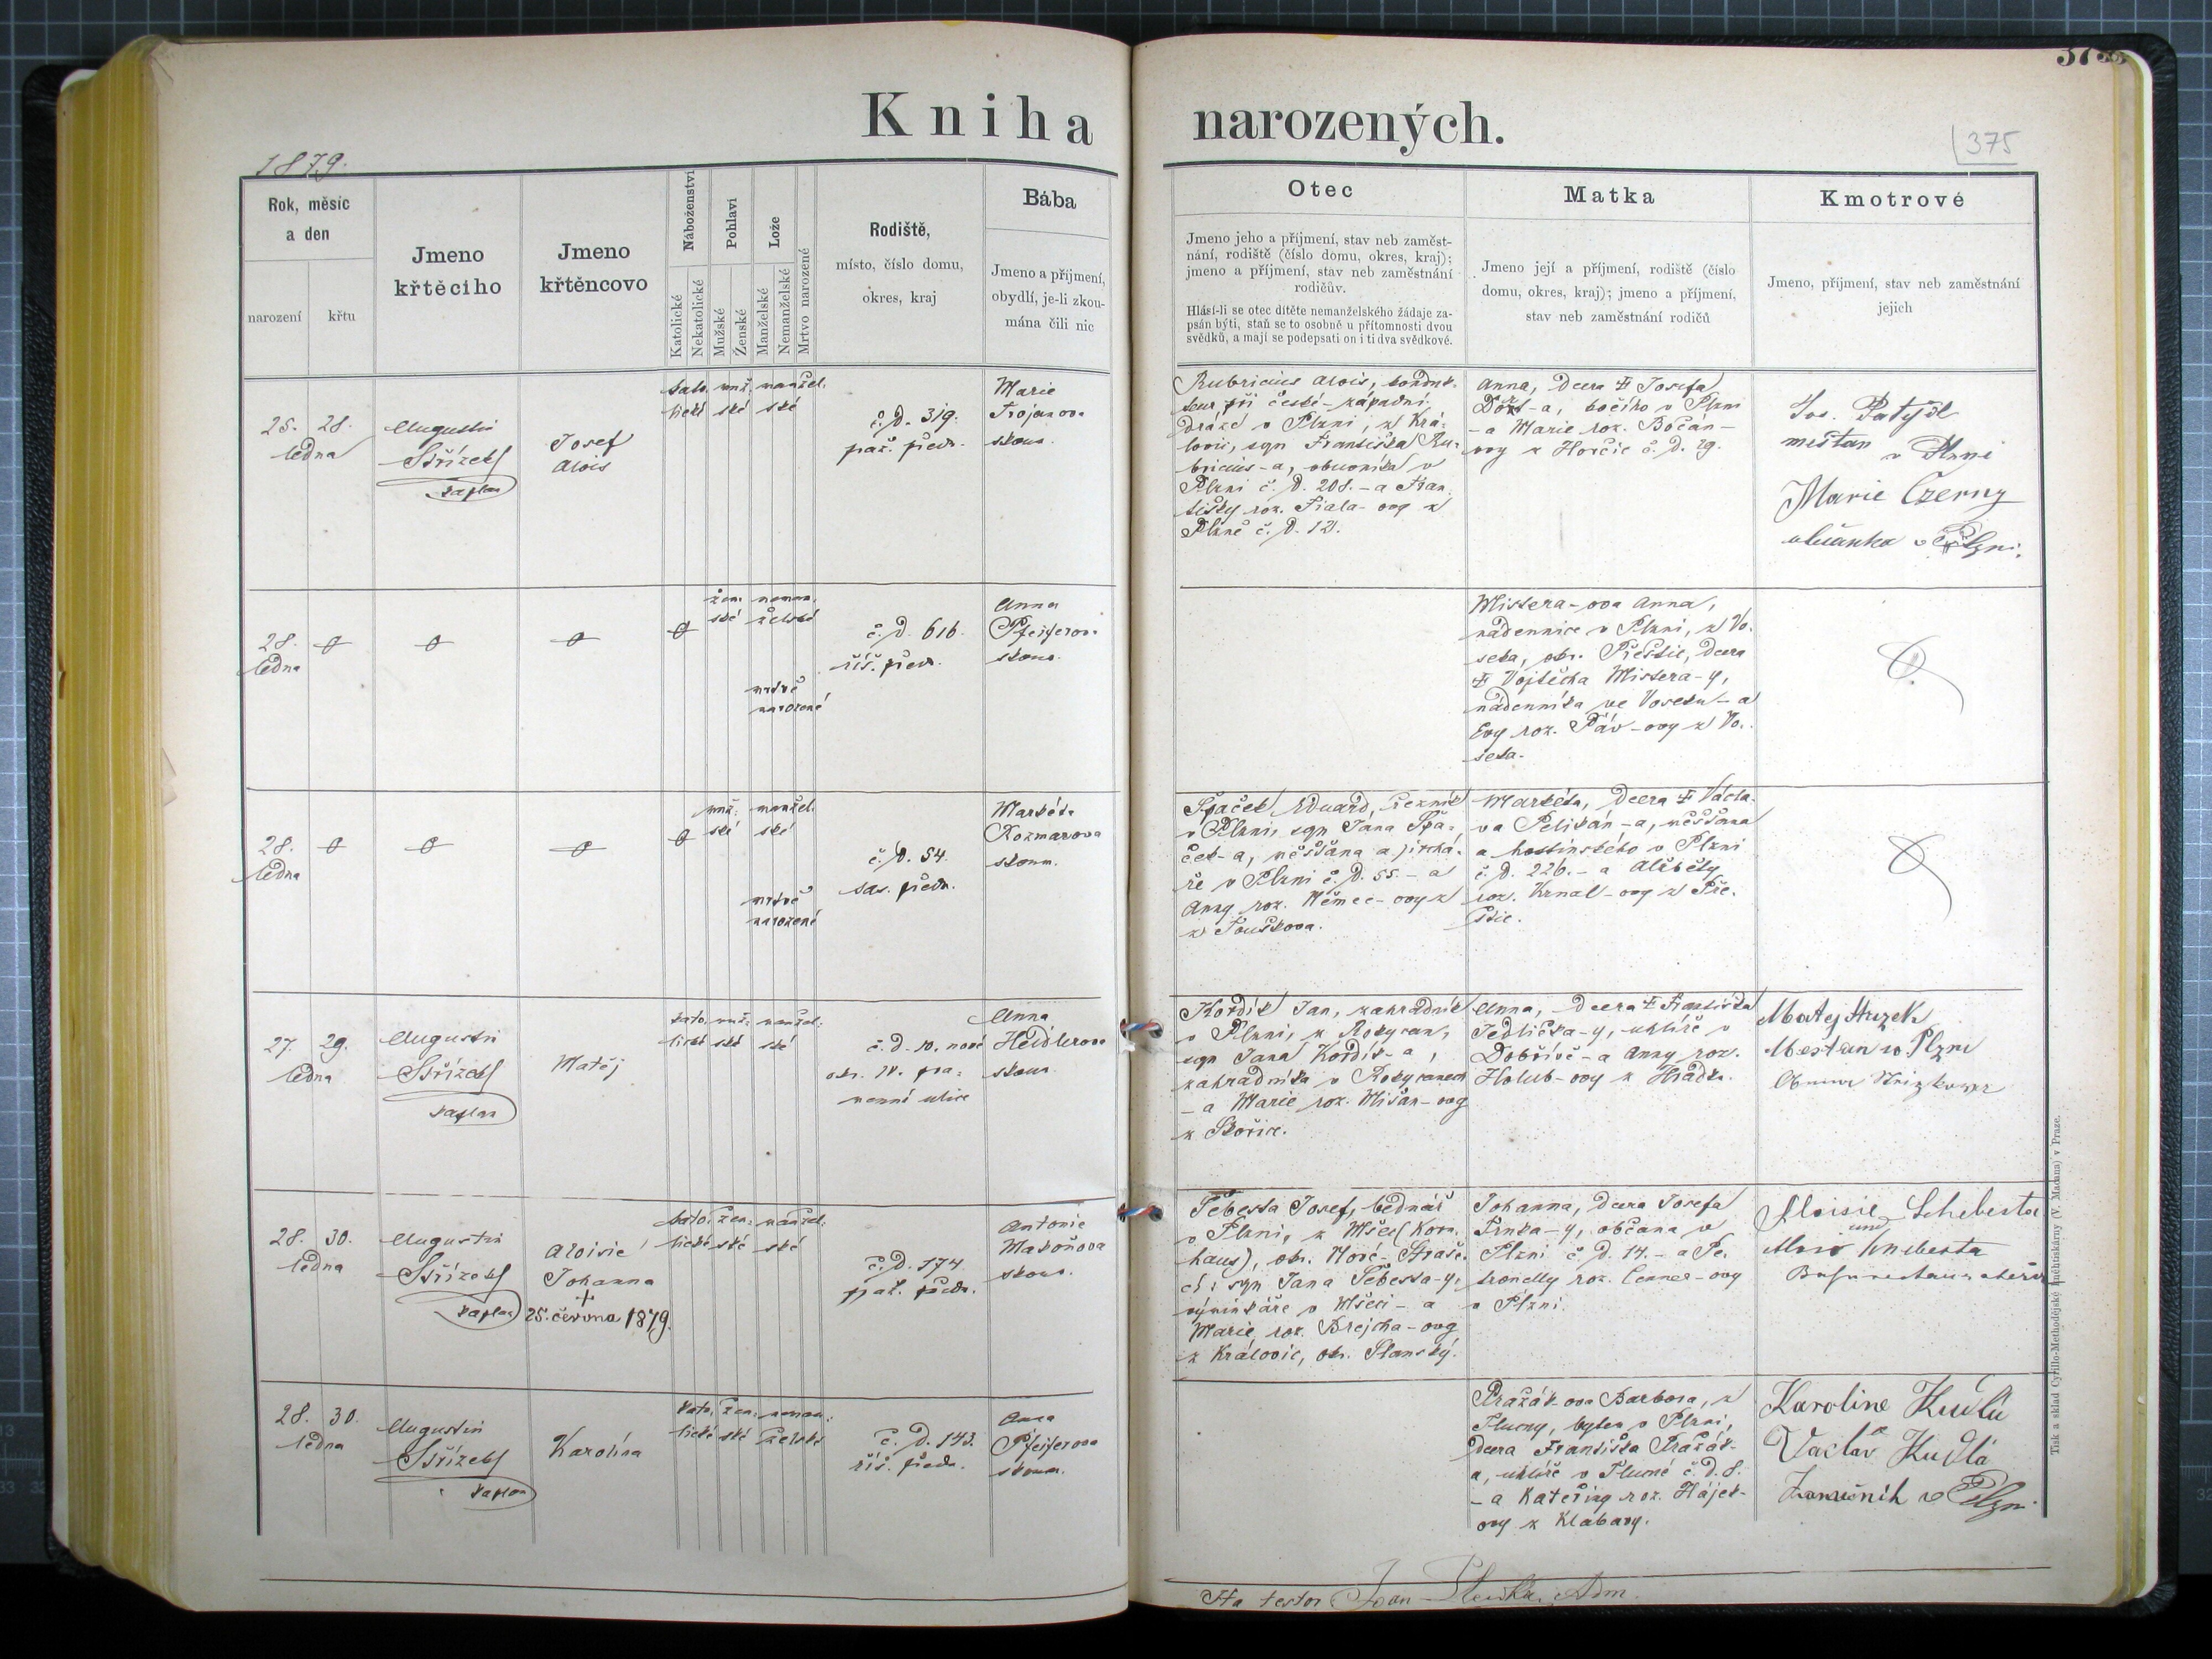 Kniha narozených.
1879.
375
Rok, měsíc
a den
narození
křtu
Jmeno
křtěcího
Jmeno
křtěncovo
Náboženství
Katolické
Nekatolické
Pohlaví
Mužské
Ženské
Lože
Manželské
Nemanželské
Mrtvo narozené
Rodiště,
místo, číslo domu,
okres, kraj
Bába
Jmeno a příjmení,
obydlí, je-li zkou-
mána čili nic
Otec
Jmeno jeho a příjmení, stav neb zaměst-
nání, rodiště (číslo domu, okres, kraj);
jmeno a příjmení, stav neb zaměstnání
rodičův.
Hlásí-li se otec dítěte nemanželského žádaje za-
psán býti, staň se to osobně u přítomnosti dvou
svědků, a mají se podepsati on i ti dva svědkové.
Matka
Jmeno její a příjmení, rodiště (číslo
domu, okres, kraj); jmeno a příjmení,
stav neb zaměstnání rodičů
Kmotrové
Jmeno, příjmení, stav neb zaměstnání
jejich
25. 28.
ledna
Augustin
Střízek
kaplan
Josef
Alois
kato- muž- manžel-
lické ské ské
č. d. 319.
praž. předm.
Marie
Trojanova
zkouš.
Rubricius Alois, konduk-
teur při česko-západní
dráze v Plzni, z Krá-
lovic, syn Františka Ru-
bricius-a, obuvníka v
Plzni č. d. 208. - a Fran-
tišky roz. Fiala-ovy z
Plzně č. d. 12.
Anna, dcera Josefa
-a, kočího v Plzni
- a Marie roz. Bočan-
ovy z Horčic č. d. 29.
Jos.
měštan
v Plzni
Marie Czerny
v Plzni.
28.
ledna
žen- neman-
ské želské
mrtvě
narozené
č. d. 616.
říš. předm.
Anna
Pfeiferova
zkouš.
Mistera-ova Anna,
nádennice v Plzni, z Vo-
seka, okr. Přeštic, dcera
Vojtěcha Mistera-y,
nádenníka ve Voseku - a
Evy roz. Páv-ovy z Vo-
seka.
28.
ledna
muž- manžel-
ské ské
mrtvě
narozené
č. d. 54.
sas. předm.
Markéta
Rozmarova
zkoum.
Špaček Eduard, řezník
v Plzni, syn Jana Špa-
ček-a, měšťana a jirchá-
ře v Plzni č. d. 55. - a
Anny roz. Němec-ovy z
z Touškova.
Markéta, dcera Václa-
va Pelikán-a, měšťana
a hostinského v Plzni
č. d. 226. - a Alžběty
roz. Krnal-ovy z Pře-
štic.
27. 29.
ledna
Augustin
Střízek
kaplan
Matěj
kato- muž- manžel-
lické ské ské
č. d. 10. nové
okr. IV. pra-
menní ulice
Anna
Heidlerova
zkouš.
Kordík Jan, zahradník
v Plzni, z Rokycan,
syn Jana Kordík-a,
zahradníka v Rokycanech
- a Marie roz. Mišan-ovy
z Skořice.
Anna, dcera Františka
Jedlička-y, uhlíře v
Dobřívě - a Anny roz.
Holub-ovy z Hrádku.
Matej Huzek
Mestan w Plzni
28. 30.
ledna
Augustin
Střízek
kaplan
Aloisie
Johanna
+
25. června 1879.
kato- žen- manžel-
lické ské ské
č. d. 174.
praž. předm.
Antonie
Makoňova
zkouš.
Šebesta Josef, bednář
v Plzni, z Mšec (Korn-
haus), okr. Nové-Straše-
cí; syn Jana Šebesta-y,
výminkáře v Mšeci - a
Marie roz. Brejcha-ovy
z Královic, okr. Slanský.
Johanna, dcera Josefa
Trnka-y, občana v
Plzni č. d. 14. - a Pe-
tronelly roz. Cenner-ovy
v Plzni.
Aloisie Schebesta
und
Alois Schebesta
28. 30.
ledna
Augustin
Střízek
kaplan
Karolína
kato- žen- neman-
lické ské želské
č. d. 143.
říš. předm.
Anna
Pfeiferova
zkoum.
Pražák-ova Barbora, z
Plumy, bytem v Plzni,
dcera Františka Pražák-
a, uhlíře v Plumě č. d. 8.
- a Kateřiny roz. Hájek-
ovy z Klabavy.
Karoline Kudla
Vaclav Kudla
v Plzni
Jan Adm.
Tisk a sklad Cyrillo-Methodějské knihtiskárny (V. Madana) v Praze.